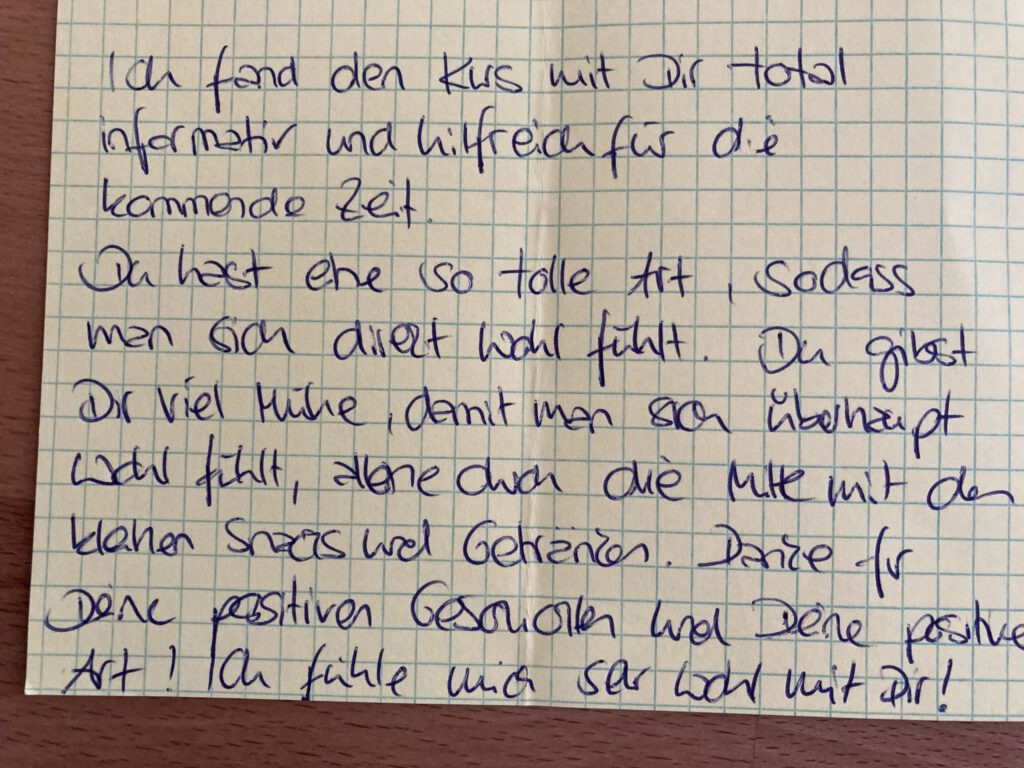 Ich fand den Kurs mit Dir total
informativ und hilfreich für die
kommende Zeit.
Du hast eine so tolle Art, sodass
man sich direkt wohl fühlt. Du gibst
Dir viel Mühe, damit man sich überhaupt
wohl fühlt, alleine durch die Mitte mit den
kleinen Snacks und Getränken. Danke für
Deine positiven Geschichten und Deine positive
Art! Ich fühle mich sehr wohl mit Dir!